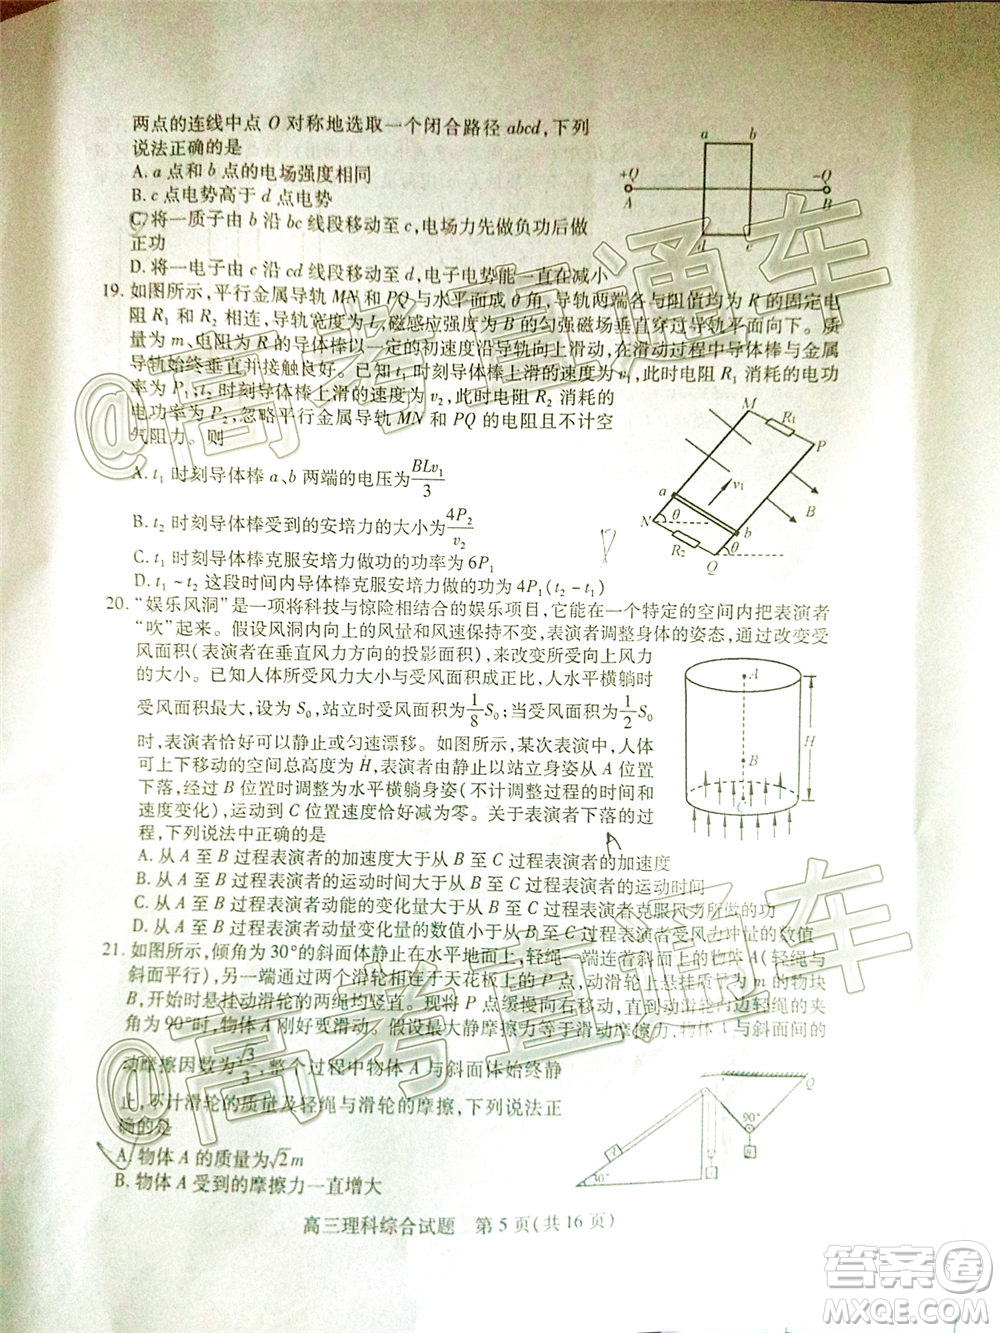 两点的连线中点 O 对称地选取一个闭合路径 abcd,下列
说法正确的是
A. a 点和 b 点的电场强度相同
B. c 点电势高于 d 点电势
C. 将一质子由 b 沿 bc 线段移动至 c,电场力先做负功后做
正功
D. 将一电子由 c 沿 cd 线段移动至 d,电子电势能一直在减小
a b
+Q -Q
A B
d c
19. 如图所示,平行金属导轨 MN 和 PQ 与水平面成 θ 角,导轨两端各与阻值均为 R 的固定电
阻 R₁ 和 R₂ 相连,导轨宽度为 L,磁感应强度为 B 的匀强磁场垂直穿过导轨平面向下。质
量为 m、电阻为 R 的导体棒以一定的初速度沿导轨向上滑动,在滑动过程中导体棒与金属
导轨始终垂直并接触良好。已知 t₁ 时刻导体棒上滑的速度为 v₁,此时电阻 R₁ 消耗的电功
率为 P₁,t₂ 时刻导体棒上滑的速度为 v₂,此时电阻 R₂ 消耗的
电功率为 P₂,忽略平行金属导轨 MN 和 PQ 的电阻且不计空
气阻力。则
A. t₁ 时刻导体棒 a、b 两端的电压为 BLv₁/3
B. t₂ 时刻导体棒受到的安培力的大小为 4P₂/v₂
C. t₁ 时刻导体棒克服安培力做功的功率为 6P₁
D. t₁ ~ t₂ 这段时间内导体棒克服安培力做的功为 4P₁(t₂ − t₁)
M R₁ P
a v₁ B
N θ b
R₂ θ
Q
20. “娱乐风洞”是一项将科技与惊险相结合的娱乐项目,它能在一个特定的空间内把表演者
“吹”起来。假设风洞内向上的风量和风速保持不变,表演者调整身体的姿态,通过改变受
风面积(表演者在垂直风力方向的投影面积),来改变所受向上风力
的大小。已知人体所受风力大小与受风面积成正比,人水平横躺时
受风面积最大,设为 S₀,站立时受风面积为 1/8 S₀;当受风面积为 1/2 S₀
时,表演者恰好可以静止或匀速漂移。如图所示,某次表演中,人体
可上下移动的空间总高度为 H,表演者由静止以站立身姿从 A 位置
下落,经过 B 位置时调整为水平横躺身姿(不计调整过程的时间和
速度变化),运动到 C 位置恰好减为零。关于表演者下落的过
程,下列说法中正确的是
A
B
C
H
A. 从 A 至 B 过程表演者的加速度大于从 B 至 C 过程表演者的加速度
B. 从 A 至 B 过程表演者的运动时间大于从 B 至 C 过程表演者的运动时间
C. 从 A 至 B 过程表演者动能的变化量大于从 B 至 C 过程表演者克服风力所做的功
D. 从 A 至 B 过程表演者动量变化量的数值小于从 B 至 C 过程表演者受风力冲量的数值
21. 如图所示,倾角为 30°的斜面体静止在水平地面上,轻绳一端连着斜面上的物体 A(轻绳与
斜面平行),另一端通过两个滑轮相连于天花板上的 P 点,动滑轮上悬挂质量为 m 的物块
B,开始时悬挂动滑轮的两绳均竖直。现将 P 点缓慢向右移动,直到动滑轮两边轻绳的夹
角为 90°时,物体 A 刚好要滑动。假设最大静摩擦力等于滑动摩擦力,物体 A 与斜面间的
动摩擦因数为 √3/3,整个过程中物体 A 与斜面体始终静
止,不计滑轮的质量及轻绳与滑轮的摩擦,下列说法正
确的是
A. 物体 A 的质量为√2m
B. 物体 A 受到的摩擦力一直增大
A 30° 90° Q
高三理科综合试题 第 5 页(共 16 页)
@高考直通车
@高考直通车
答案卷
MXQE.COM